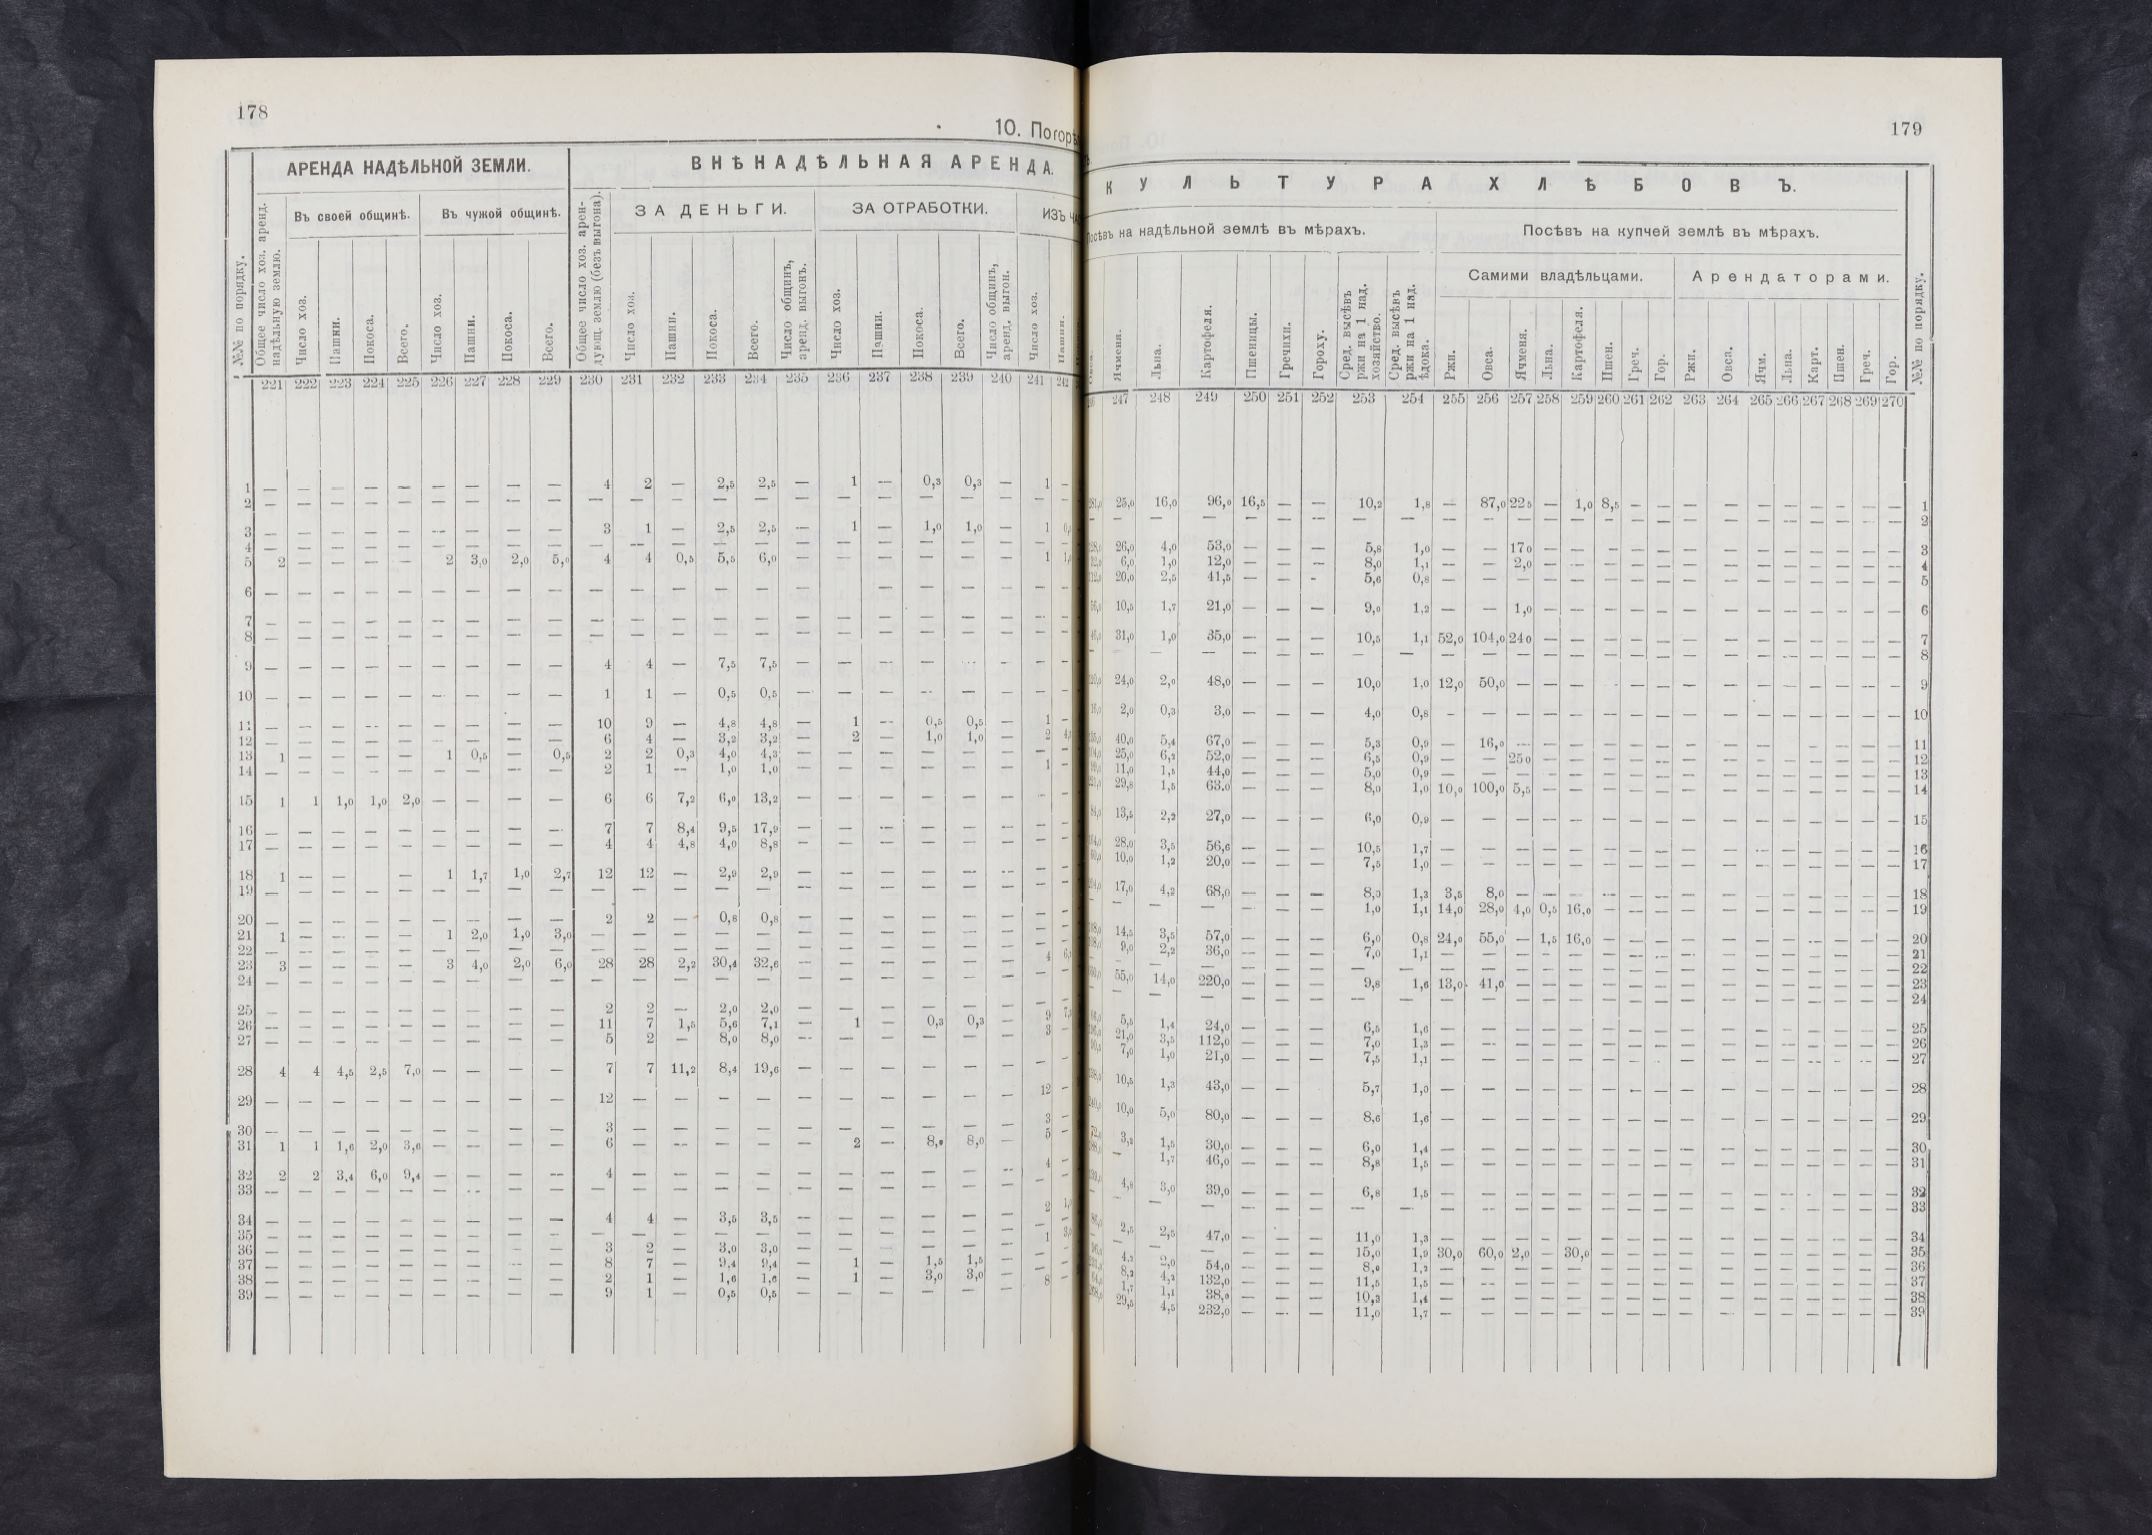 178
10. Погорѣ
АРЕНДА НАДѢЛЬНОЙ ЗЕМЛИ.
ВНѢНАДѢЛЬНАЯ АРЕНДА.
Въ своей общинѣ. Въ чужой общинѣ. ЗА ДЕНЬГИ. ЗА ОТРАБОТКИ. ИЗЪ ЧА
№№ по порядку.
Общее число хоз. аренд. надѣльную землю.
Число хоз.
Пашни.
Покоса.
Всего.
Число хоз.
Пашни.
Покоса.
Всего.
Общее число хоз. арендующ. землю (безъ выгона).
Число хоз.
Пашни.
Покоса.
Всего.
Число общинъ, аренд. выгонъ.
Число хоз.
Пашни.
Покоса.
Всего.
Число общинъ, аренд. выгон.
Число хоз.
Пашни.
221 222 223 224 225 226 227 228 229 230 231 232 233 234 235 236 237 238 239 240 241 242
1 — — — — — — — — — 4 2 — 2,5 2,5 — 1 — 0,3 0,3 — 1 —
2 — — — — — — — — — — — — — — — — — — — — — —
3 — — — — — — — — — 3 1 — 2,5 2,5 — 1 — 1,0 1,0 — 1
4 — — — — — — — — — — — — — — — — — — — — — —
5 2 — — — — 2 3,0 2,0 5,0 4 4 0,5 5,5 6,0 — — — — — — 1
6 — — — — — — — — — — — — — — — — — — — — —
7 — — — — — — — — — — — — — — — — — — — — — —
8 — — — — — — — — — — — — — — — — — — — — — —
9 — — — — — — — — — 4 4 — 7,5 7,5 — — — — — — — —
10 — — — — — — — — — 1 1 — 0,5 0,5 — — — — — — — —
11 — — — — — — — — — 10 9 — 4,8 4,8 — 1 — 0,5 0,5 — 1 —
12 — — — — — — — — — 6 4 — 3,2 3,2 — 2 — 1,0 1,0 — 2
13 1 — — — — 1 0,5 — 0,5 2 2 0,3 4,0 4,3 — — — — — — — —
14 — — — — — — — — — 2 1 — 1,0 1,0 — — — — — — 1 —
15 1 1 1,0 1,0 2,0 — — — — 6 6 7,2 6,0 13,2 — — — — — — — —
16 — — — — — — — — — 7 7 8,4 9,5 17,9 — — — — — — — —
17 — — — — — — — — — 4 4 4,8 4,0 8,8 — — — — — — — —
18 1 — — — 1 1,7 1,0 2,7 12 12 — 2,9 2,9 — — — — — — — —
19 — — — — — — — — — — — — — — — — — — — — — —
20 — — — — — — — — — 2 2 — 0,8 0,8 — — — — — — — —
21 1 — — — — 1 2,0 1,0 3,0 — — — — — — — — — — — — —
22 — — — — — — — — — — — — — — — — — — — — — —
23 3 — — — — 3 4,0 2,0 6,0 28 28 2,2 30,4 32,6 — — — — — — 4
24 — — — — — — — — — — — — — — — — — — — — — —
25 — — — — — — — — — 2 2 — 2,0 2,0 — — — — — — — —
26 — — — — — — — — — 11 7 1,5 5,6 7,1 — 1 — 0,3 0,3 — 9
27 — — — — — — — — — 5 2 — 8,0 8,0 — — — — — — 3 —
28 4 4 4,5 2,5 7,0 — — — — 7 7 11,2 8,4 19,6 — — — — — — — —
29 — — — — — — — — — 12 — — — — — — — — — — 12 —
30 — — — — — — — — — 3 — — — — — — — — — — 3 —
31 1 1 1,6 2,0 3,6 — — — — 6 — — — — — 2 — 8,0 8,0 — 5 —
32 2 2 3,4 6,0 9,4 — — — — 4 — — — — — — — — — — 4 —
33 — — — — — — — — — — — — — — — — — — — — — —
34 — — — — — — — — — 4 4 — 3,5 3,5 — — — — — — 2
35 — — — — — — — — — — — — — — — — — — — — — —
36 — — — — — — — — — 3 2 — 3,0 3,0 — — — — — — 1
37 — — — — — — — — — 8 7 — 9,4 9,4 — 1 — 1,5 1,5 — — —
38 — — — — — — — — — 2 1 — 1,6 1,6 — 1 — 3,0 3,0 — — —
39 — — — — — — — — — 9 1 — 0,5 0,5 — — — — — — 8 —
179
КУЛЬТУРА ХЛѢБОВЪ.
Посѣвъ на надѣльной землѣ въ мѣрахъ. Посѣвъ на купчей землѣ въ мѣрахъ.
Самими владѣльцами. Арендаторами.
Ячменя.
Льна.
Картофеля.
Пшеницы.
Гречихи.
Гороху.
Сред. высѣвъ ржи на 1 над. хозяйство.
Сред. высѣвъ ржи на 1 над. ѣдока.
Ржи.
Овса.
Ячменя.
Льна.
Картофеля.
Пшен.
Греч.
Гор.
Ржи.
Овса.
Ячм.
Льна.
Карт.
Пшен.
Греч.
Гор.
№№ по порядку.
247 248 249 250 251 252 253 254 255 256 257 258 259 260 261 262 263 264 265 266 267 268 269 270
25,0 16,0 96,0 16,5 — — 10,2 1,8 — 87,0 22 5 — 1,0 8,5 — — — — — — — — — — 1
— — — — — — — — — — — — — — — — — — — — — — — — 2
26,0 4,0 53,0 — — — 5,8 1,0 — — 17 0 — — — — — — — — — — — — — 3
6,0 1,0 12,0 — — — 8,0 1,1 — — 2,0 — — — — — — — — — — — — — 4
20,0 2,5 41,5 — — — 5,6 0,8 — — — — — — — — — — — — — — — — 5
10,5 1,7 21,0 — — — 9,0 1,2 — — 1,0 — — — — — — — — — — — — — 6
31,0 1,0 35,0 — — — 10,5 1,1 52,0 104,0 24 0 — — — — — — — — — — — — — 7
— — — — — — — — — — — — — — — — — — — — — — — — 8
24,0 2,0 48,0 — — — 10,0 1,0 12,0 50,0 — — — — — — — — — — — — — — 9
2,0 0,3 3,0 — — — 4,0 0,8 — — — — — — — — — — — — — — — — 10
40,0 5,4 67,0 — — — 5,3 0,9 — 16,0 — — — — — — — — — — — — — — 11
25,0 6,2 52,0 — — — 6,5 0,9 — — 25 0 — — — — — — — — — — — — — 12
11,0 1,5 44,0 — — — 5,0 0,9 — — — — — — — — — — — — — — — — 13
29,8 1,5 63,0 — — — 8,0 1,0 10,0 100,0 5,5 — — — — — — — — — — — — — 14
13,5 2,2 27,0 — — — 6,0 0,9 — — — — — — — — — — — — — — — — 15
28,0 3,5 56,6 — — — 10,5 1,7 — — — — — — — — — — — — — — — — 16
10,0 1,2 20,0 — — — 7,5 1,0 — — — — — — — — — — — — — — — — 17
17,0 4,2 68,0 — — — 8,0 1,3 3,5 8,0 — — — — — — — — — — — — — — 18
— — — — — — 1,0 1,1 14,0 28,0 4,0 0,5 16,0 — — — — — — — — — — — 19
14,5 3,5 57,0 — — — 6,0 0,8 24,0 55,0 — 1,5 16,0 — — — — — — — — — — — 20
9,0 2,2 36,0 — — — 7,0 1,1 — — — — — — — — — — — — — — — — 21
— — — — — — — — — — — — — — — — — — — — — — — — 22
55,0 14,0 220,0 — — — 9,8 1,6 13,0 41,0 — — — — — — — — — — — — — — 23
— — — — — — — — — — — — — — — — — — — — — — — — 24
5,5 1,4 24,0 — — — 6,5 1,6 — — — — — — — — — — — — — — — — 25
21,0 3,5 112,0 — — — 7,0 1,3 — — — — — — — — — — — — — — — — 26
7,0 1,0 21,0 — — — 7,5 1,1 — — — — — — — — — — — — — — — — 27
10,5 1,3 43,0 — — — 5,7 1,0 — — — — — — — — — — — — — — — — 28
10,0 5,0 80,0 — — — 8,6 1,6 — — — — — — — — — — — — — — — — 29
3,2 1,5 30,0 — — — 6,0 1,4 — — — — — — — — — — — — — — — — 30
— 1,7 46,0 — — — 8,8 1,5 — — — — — — — — — — — — — — — — 31
4,8 3,0 39,0 — — — 6,8 1,5 — — — — — — — — — — — — — — — — 32
— — — — — — — — — — — — — — — — — — — — — — — — 33
2,5 2,5 47,0 — — — 11,0 1,3 — — — — — — — — — — — — — — — — 34
— — — — — — 15,0 1,9 30,0 60,0 2,0 — 30,0 — — — — — — — — — — — 35
2,0 54,0 — — — 8,0 1,2 — — — — — — — — — — — — — — — — 36
8,2 4,2 132,0 — — — 11,5 1,5 — — — — — — — — — — — — — — — — 37
1,7 1,1 38,0 — — — 10,3 1,4 — — — — — — — — — — — — — — — — 38
29,5 4,5 232,0 — — — 11,0 1,7 — — — — — — — — — — — — — — — — 39